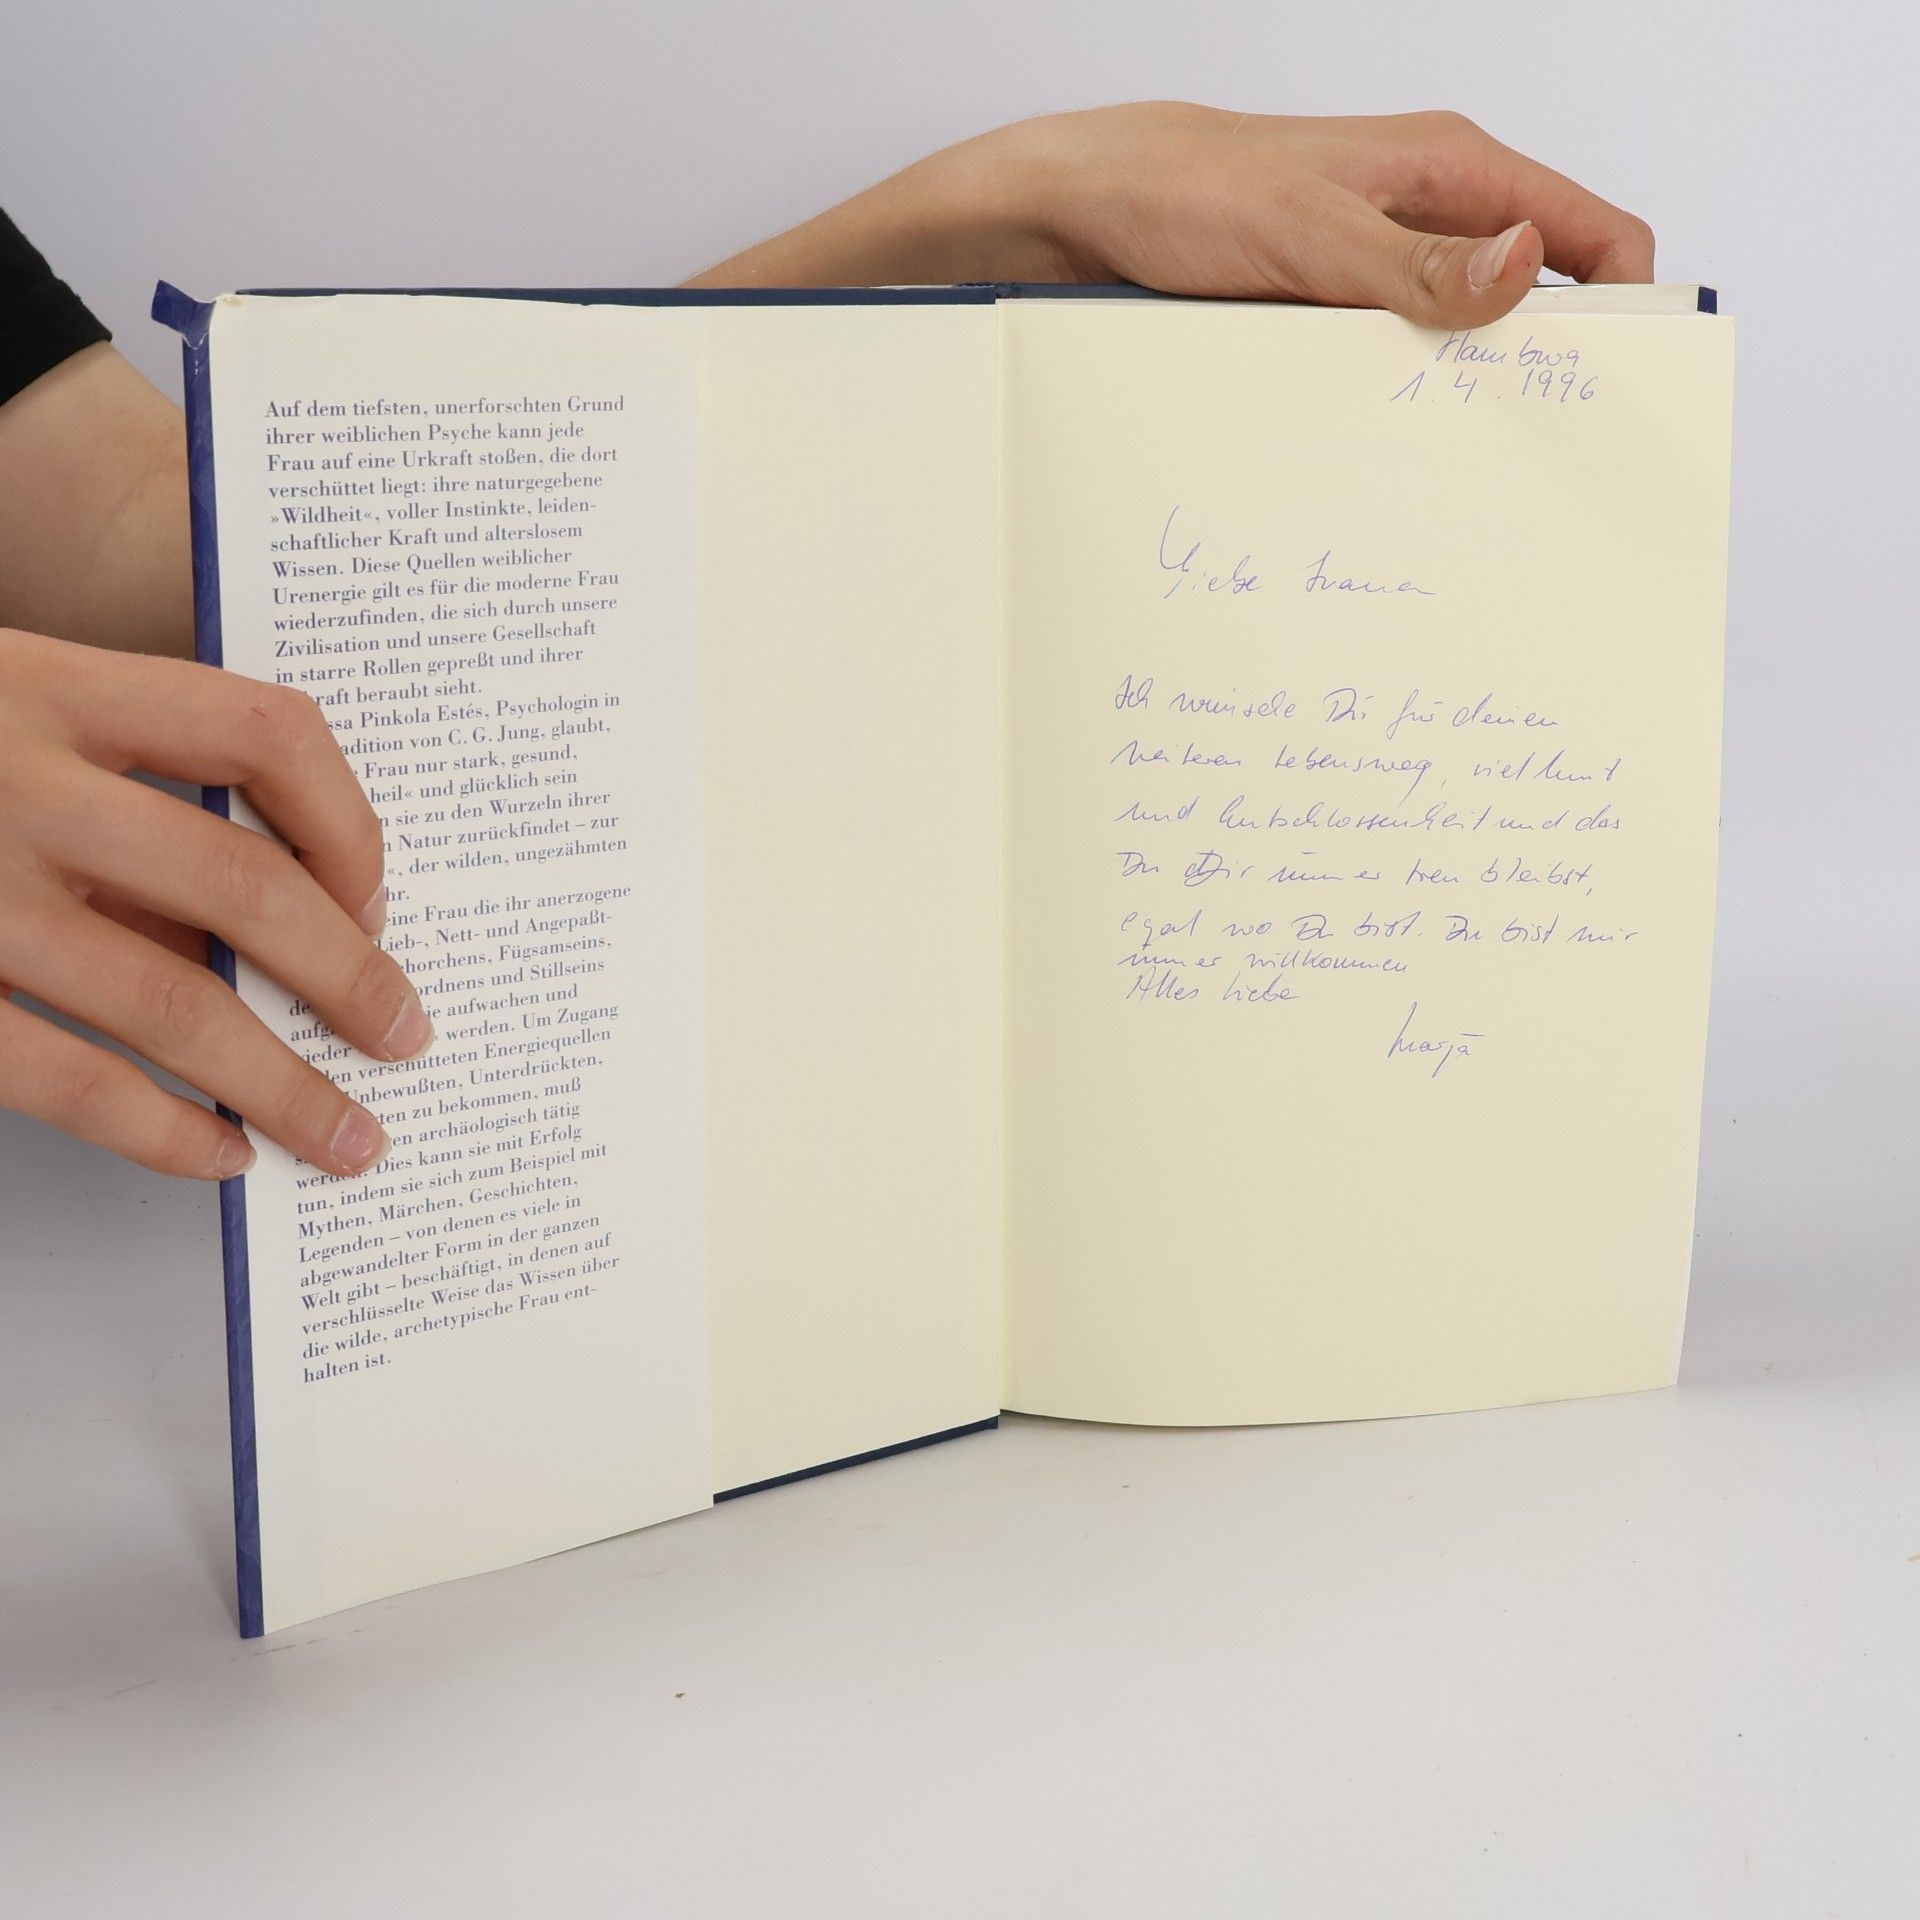 Auf dem tiefsten, unerforschten Grund
ihrer weiblichen Psyche kann jede
Frau auf eine Urkraft stoßen, die dort
verschüttet liegt: ihre naturgegebene
»Wildheit«, voller Instinkte, leiden-
schaftlicher Kraft und alterslosem
Wissen. Diese Quellen weiblicher
Urenergie gilt es für die moderne Frau
wiederzufinden, die sich durch unsere
Zivilisation und unsere Gesellschaft
in starre Rollen gepreßt und ihrer
raft beraubt sieht.
ssa Pinkola Estés, Psychologin in
adition von C. G. Jung, glaubt,
Frau nur stark, gesund,
heil« und glücklich sein
n sie zu den Wurzeln ihrer
n Natur zurückfindet – zur
«, der wilden, ungezähmten
hr.
eine Frau die ihr anerzogene
Lieb-, Nett- und Angepaßt-
horchens, Fügsamseins,
ordnens und Stillseins
ie aufwachen und
aufg werden. Um Zugang
ieder
en verschütteten Energiequellen
Unbewußten, Unterdrückten,
ten zu bekommen, muß
en archäologisch tätig
werden. Dies kann sie mit Erfolg
tun, indem sie sich zum Beispiel mit
Mythen, Märchen, Geschichten,
Legenden – von denen es viele in
abgewandelter Form in der ganzen
Welt gibt – beschäftigt, in denen auf
verschlüsselte Weise das Wissen über
die wilde, archetypische Frau ent-
halten ist.
Hamburg
1. 4. 1996
Liebe
Ich wünsche Dir für deinen
weiteren Lebensweg, viel Mut
und Entschlossenheit und das
Du Dir immer treu bleibst,
egal wo Du bist. Du bist mir
immer willkommen
Alles Liebe